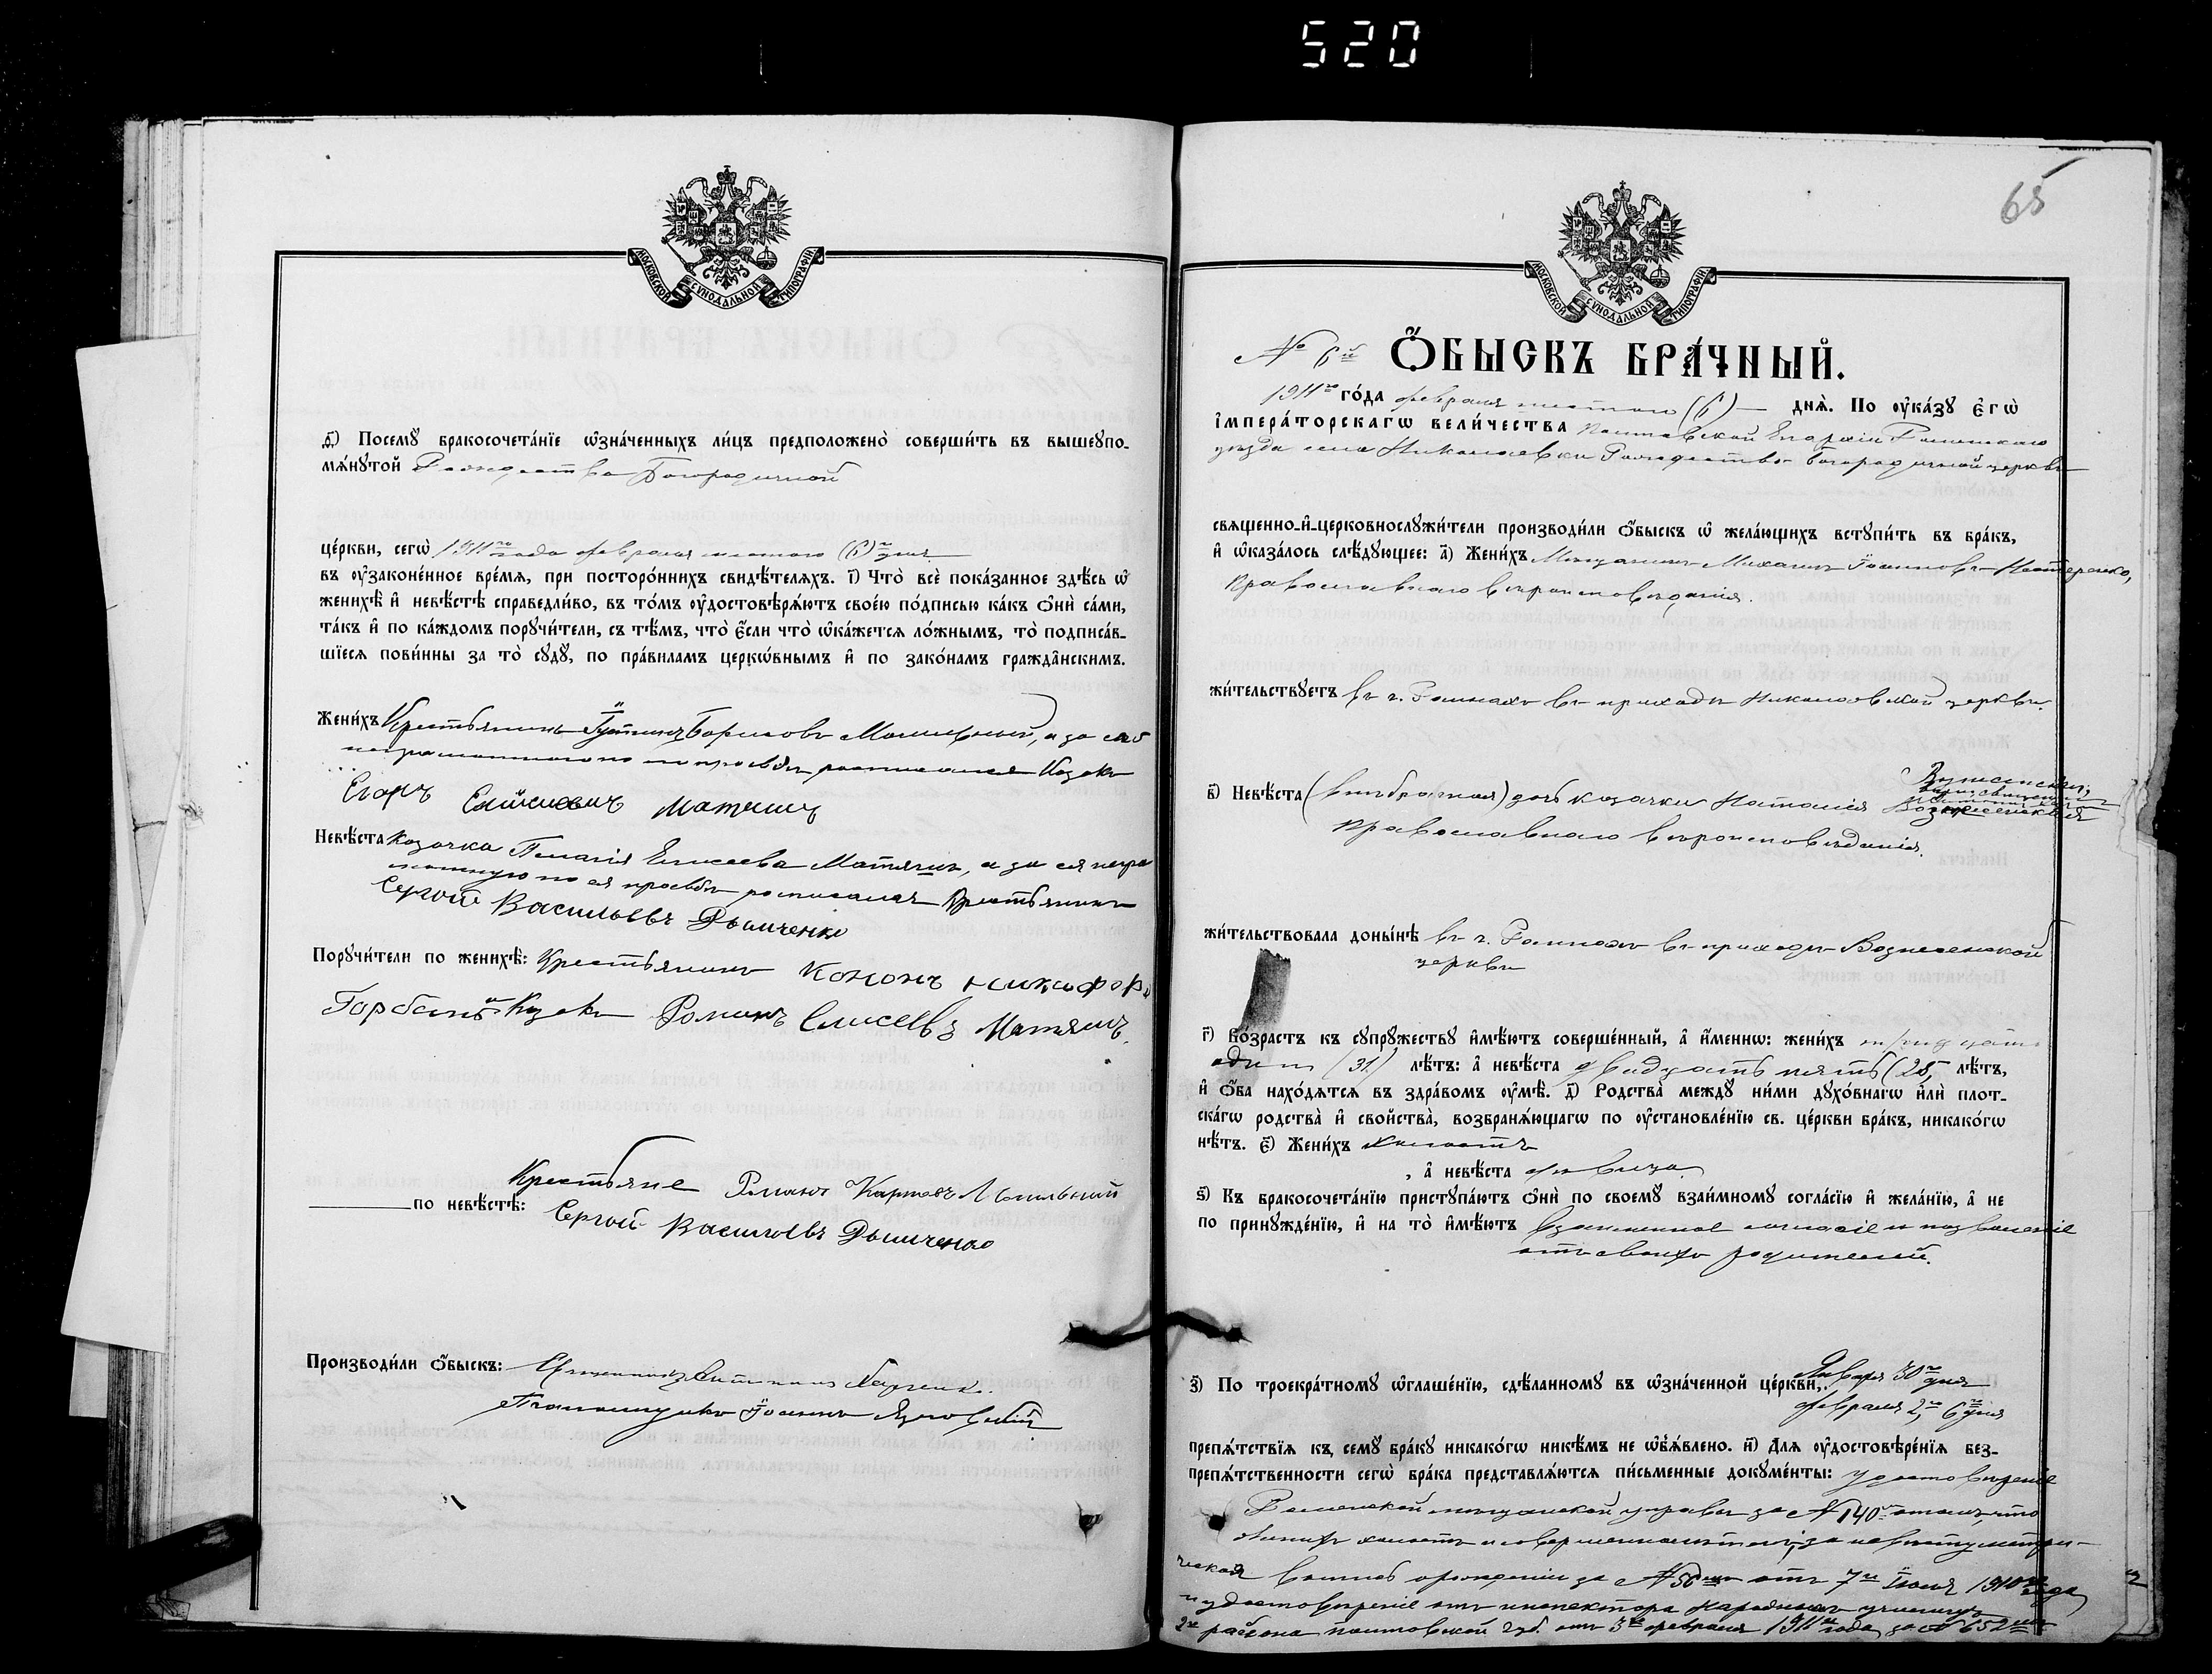 520
МОСКОВСКОЙ СѴНОДАЛЬНОЙ ТИПОГРАФІИ
д҃) Посемꙋ̀ бракосочета́нїе ѡ҆зна́ченныхъ ли́цъ предположено̀ соверши́ть въ вышеꙋпо-
мѧ́нꙋтой Рождество Богородичной
це́ркви, сегѡ̀ 1911го года февраля шестого (6)го дня
въ ᲂу҆зако́ненное вре́мѧ, при посторо́ннихъ свидѣ́телѧхъ. і҃) Что̀ всѐ пока́занное здѣ́сь ѡ҆
женихѣ̀ и҆ невѣ́стѣ справедли́во, въ то́мъ ᲂу҆достовѣрѧ́ютъ свое́ю по́дписью ка́къ ѻ҆нѝ са́ми,
та́къ и҆ по ка́ждомъ порꙋчи́тели, съ тѣ́мъ, что̀ є҆́сли что̀ ѡ҆ка́жетсѧ ло́жнымъ, то̀ подписа́в-
шїесѧ пови́нны за то̀ сꙋдꙋ̀, по пра́виламъ церкѡ́внымъ и҆ по зако́намъ гражда̑нскимъ.
Жени́хъ Крестьянинъ Борисовъ а за его
неграмотного по его просьбѣ росписался Козакъ
Егоръ Елисеевичъ Матяшъ
Невѣ́ста Козачка Пелагія Елисеева Матяшъ, а за ея негра
мотную по ея просьбѣ росписался Крестьянинъ
Сергей Васильевъ Дымченко
Порꙋчи́тели по женихѣ̀: Крестьянинъ Кононъ Никифоро
Горбань и Козакъ Романъ Елисеевъ Матяшъ.
Крестьяне Романъ Карповъ
по невѣ́стѣ: Сергей Васильевъ Дымченко
Производи́ли ѻ҆́быскъ: Священникъ
Псаломщикъ Іоаннъ
65
МОСКОВСКОЙ СѴНОДАЛЬНОЙ ТИПОГРАФІИ
№ 6й Ѻ҆́БЫСКЪ БРА́ЧНЫЙ.
1911го го́да февраля шестого (6) — днѧ̀. По ᲂу҆ка́зꙋ є҆гѡ̀
і҆мпера́торскагѡ вели́чества Полтавской Епархіи Роменскаго
уѣзда села Николаевки Рождество-Богородичной церкви
свѧщенно-и҆-церковнослꙋжи́тели производи́ли ѻ҆́быскъ ѡ҆ жела́ющихъ встꙋпи́ть въ бра́къ,
и҆ ѡ҆каза́лось слѣ́дꙋющее: а҃) Жени́хъ Мѣщанинъ Михаилъ Іоанновъ Нестеренко,
Православнаго вѣроисповѣданія.
жи́тельствꙋетъ въ г. Ромнахъ въ приходѣ Николаевской церкви.
в҃) Невѣ́ста (внѣбрачная) дочь козачки Наталія Вознесенская
Православнаго вѣроисповѣданія.
жи́тельствовала донынѣ въ г. Ромнахъ въ приходѣ Вознесенской
церкви
г҃) Во́зрастъ къ сꙋпрꙋ́жествꙋ и҆мѣ́ютъ соверше́нный, а҆ и҆́меннѡ: жени́хъ тридцати
одинъ (31) лѣ́тъ: а҆ невѣ́ста двадцать пять (25) лѣ́тъ,
и҆ ѻ҆́ба нахо́дѧтсѧ въ здра́вомъ ᲂу҆мѣ̀. д҃) Родства̀ междꙋ̀ ни́ми дꙋхо́внагѡ и҆лѝ плот-
ска́гѡ родства̀ и҆ свойства̀, возбранѧ́ющагѡ по ᲂу҆становле́нїю св. це́ркви бра́къ, никако́гѡ
нѣ́тъ. є҃) Жени́хъ холостъ
, а҆ невѣ́ста дѣвица
ѕ҃) Къ бракосочета́нїю пристꙋпа́ютъ ѻ҆нѝ по своемꙋ̀ взаи́мномꙋ согла́сїю и҆ жела́нїю, а҆ не
по принꙋжде́нїю, и҆ на то̀ и҆мѣ́ютъ взаимное согласіе и позволеніе
отъ своихъ родителей.
з҃) По троекра́тномꙋ ѡ҆глаше́нїю, сдѣ́ланномꙋ въ ѡ҆зна́ченной це́ркви, Января 30го дня
февраля 2го, 6го дня
препѧ́тствїѧ къ семꙋ̀ бра́кꙋ никако́гѡ никѣ́мъ не ѡ҆бъѧ́влено. и҃) Длѧ ᲂу҆достовѣре́нїѧ без-
препѧ́тственности сегѡ̀ бра́ка представлѧ́ютсѧ пи́сьменные докꙋме́нты: удостовѣреніе
Роменской мѣщанской управы за № 140 о томъ, что
женихъ холостъ и совершеннолѣтній; за невѣсту метри-
ческая выпись о рожденіи за № 56 отъ 7го Іюля 1910го года
и удостовѣреніе отъ инспектора народныхъ училищъ
2го района Полтавской губ. отъ 3го февраля 1911го года за № 652